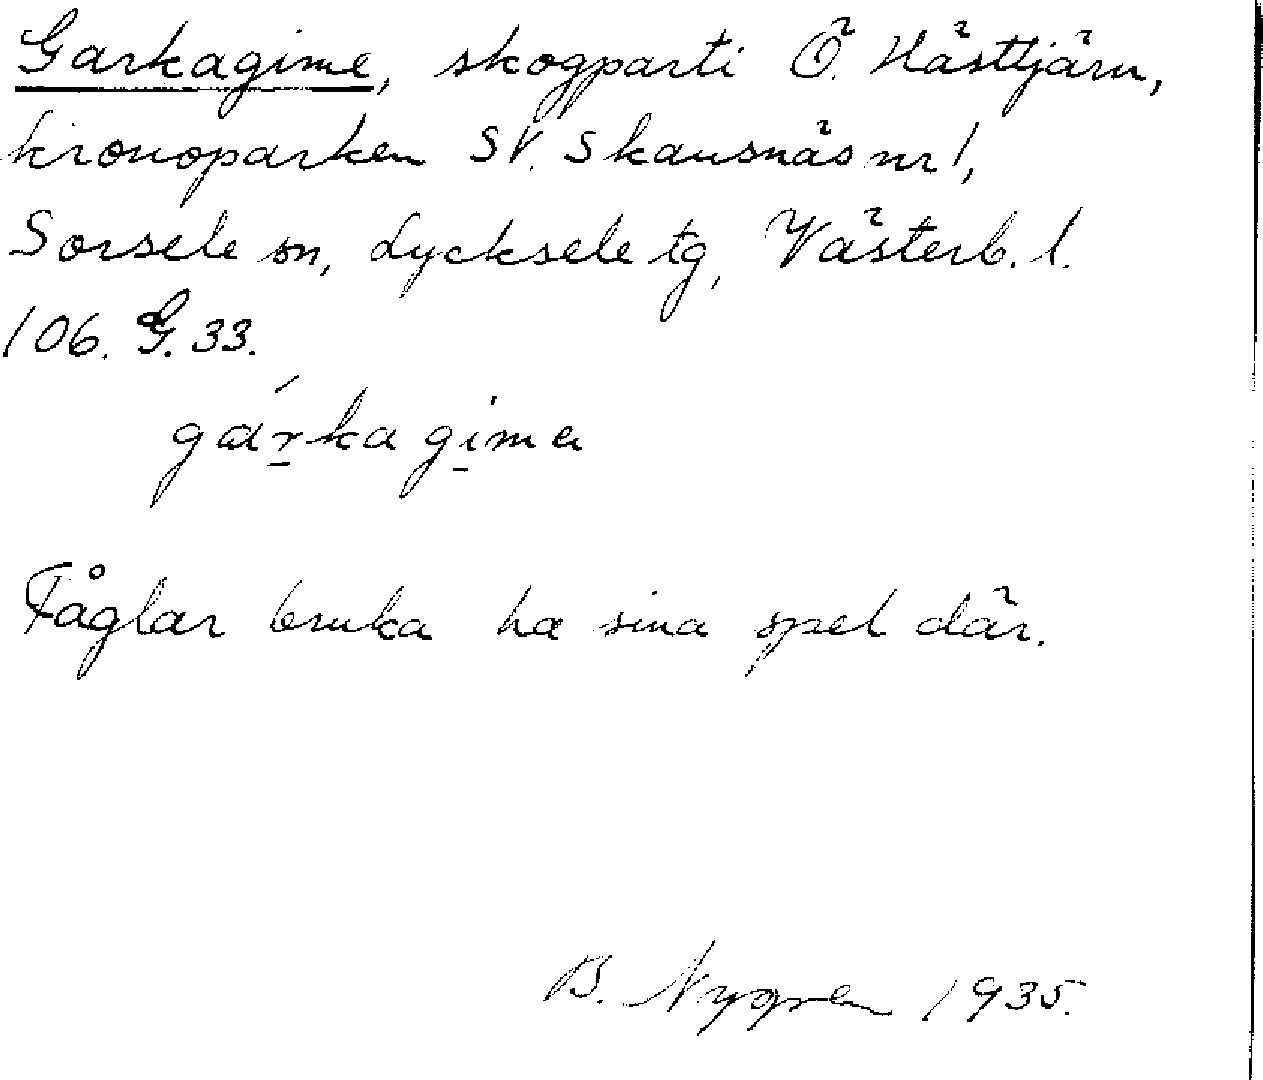 Garkagime, skogparti Ö. Hästtjärn,
kronoparken SV. Skansnäs nr 1,
Sorsele sn, Lycksele tg, Västerb. l.
106. G. 33.
gárka gima
Fåglar bruka ha sina spel där.
B. Nygren 1935.